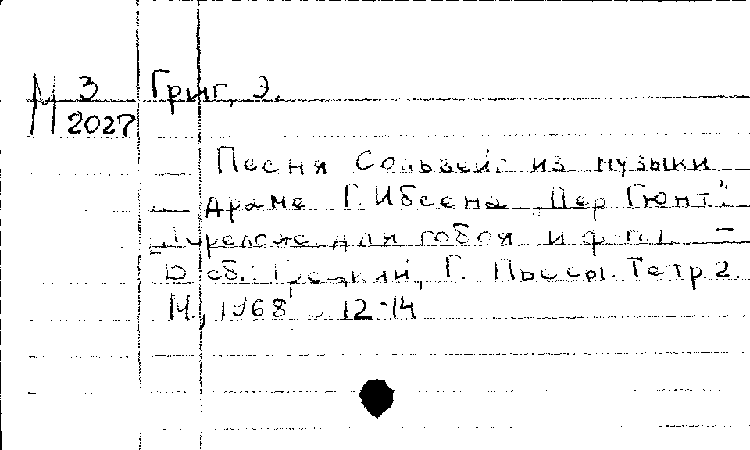 М 3 Григ, Э.
2027
Песня Сольвейг из музыки
драме Г. Ибсена „Пер Гюнт".
для гобоя и ф-п. –
В сб.: Г. Пьесы. Тетр 2.
М., 1968 12-14